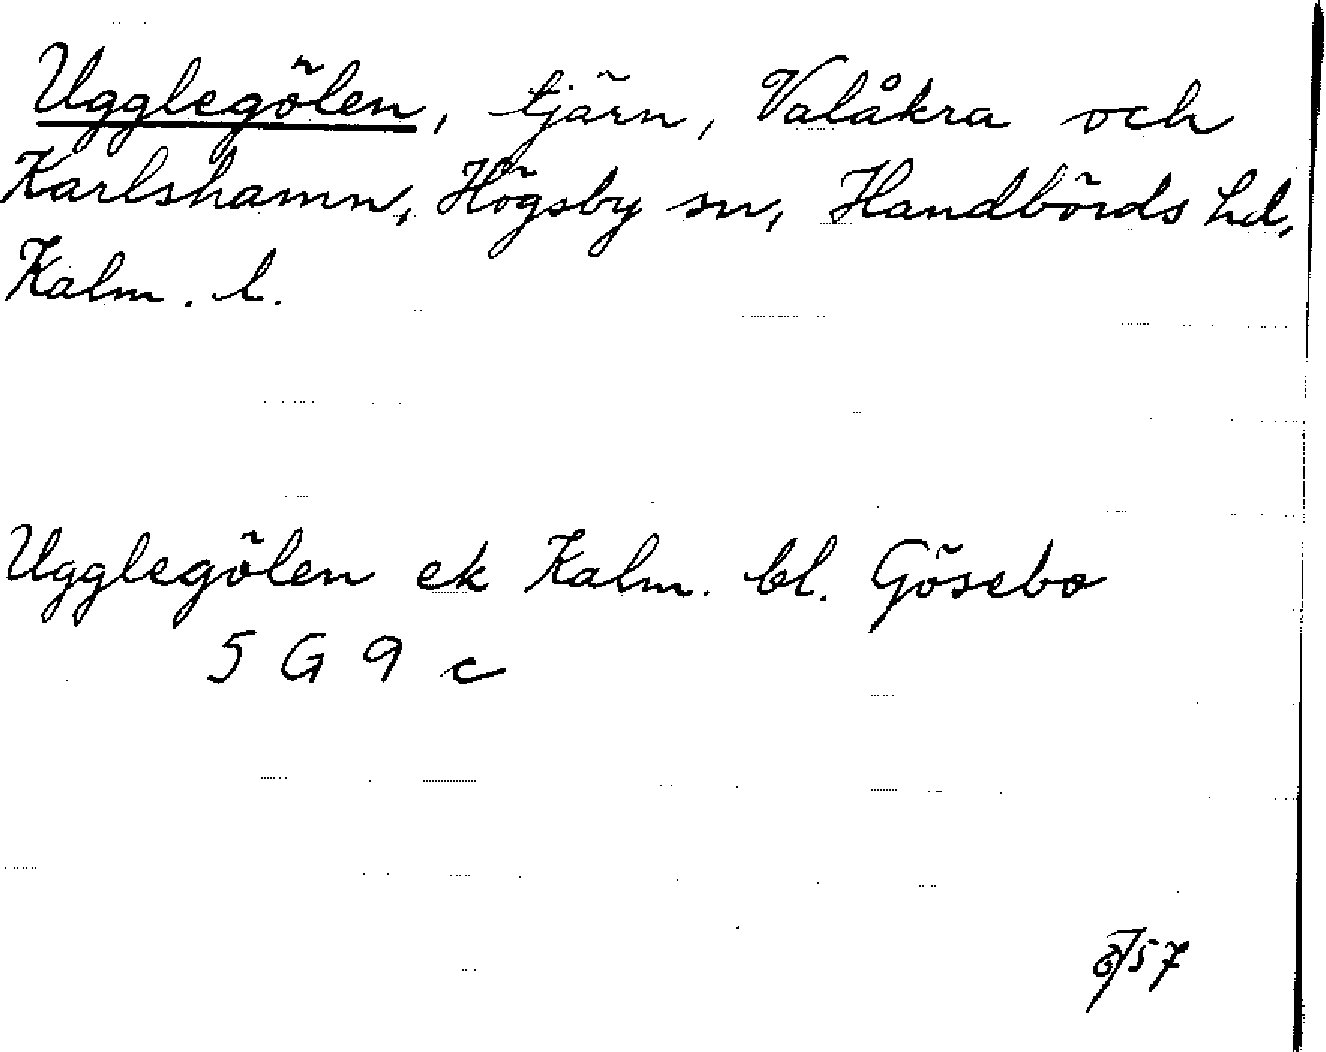 Ugglegölen, tjärn, Valåkra och
Karlshamn, Högsby sn, Handbörds hd,
Kalm. l.
Ugglegölen ek Kalm. bl. Gösebo
5 G 9 c
57